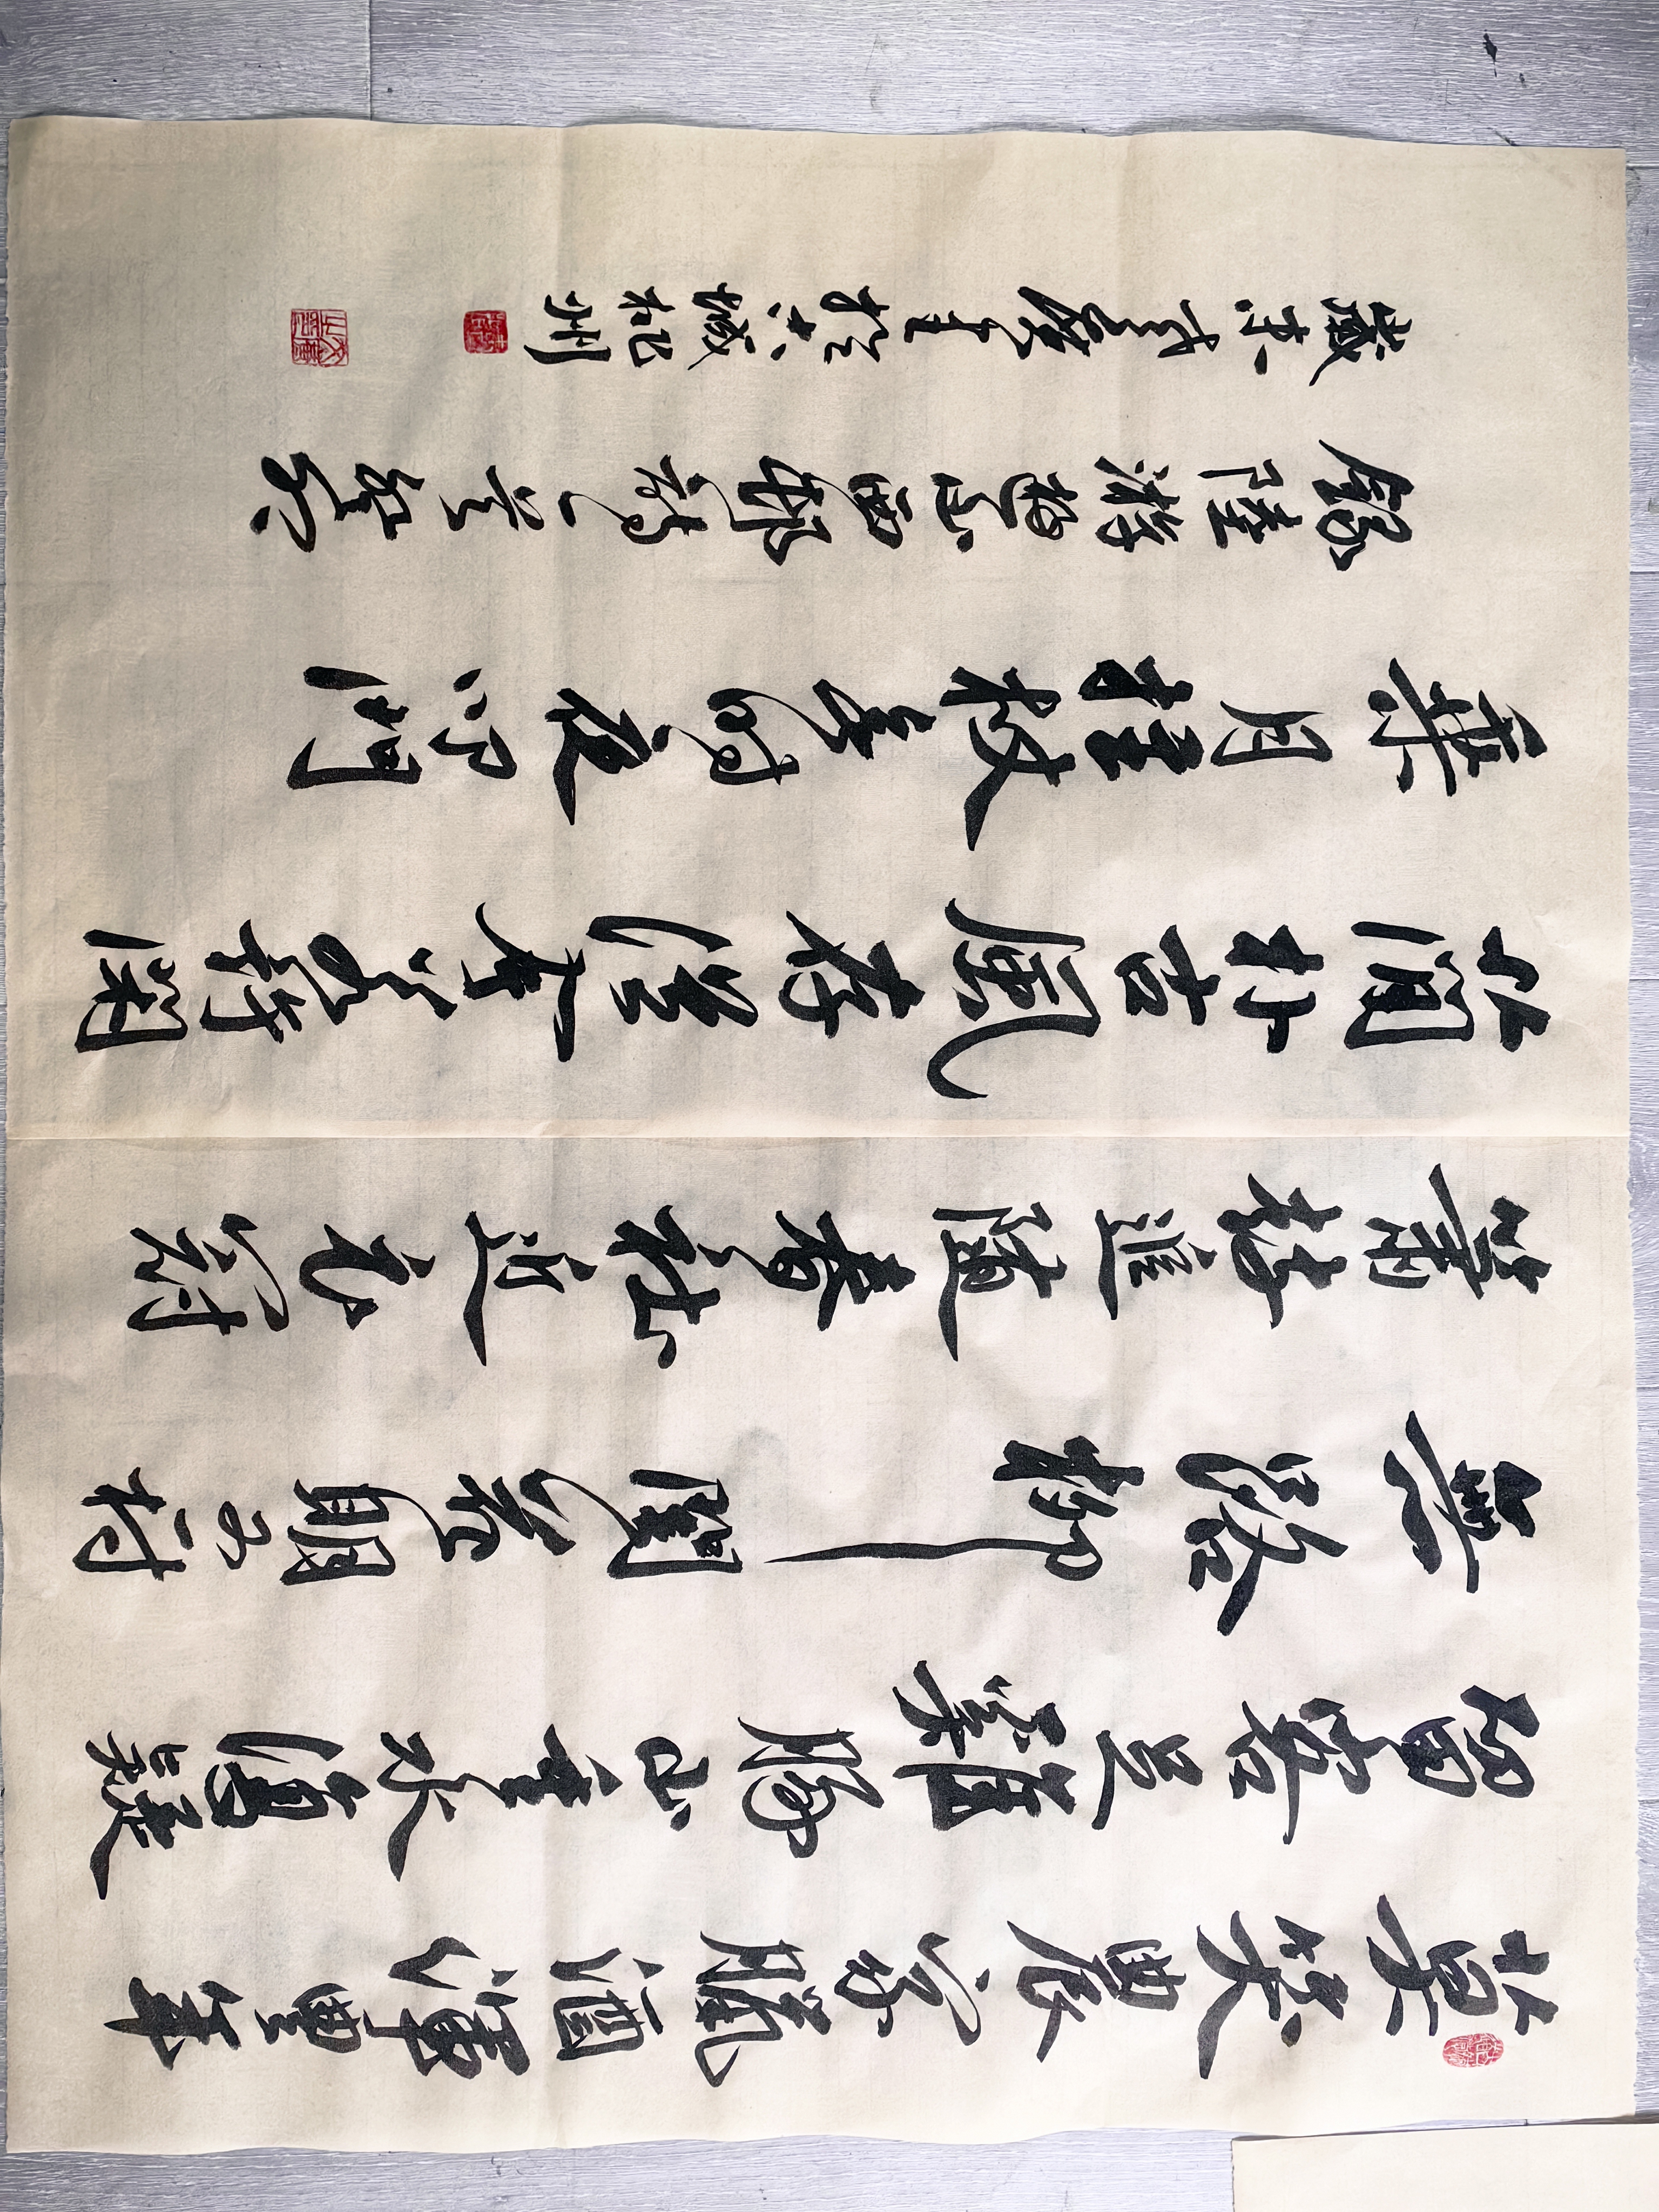 莫笑農家臘酒渾豐年
留客足豚山重水復疑
無路柳闇花明又一村
簫鼓追隨春社近衣冠
簡朴古風存從今若許閑
乘月拄杖無時夜叩門
錄陸游遊山西邨詩一
歲於京城州